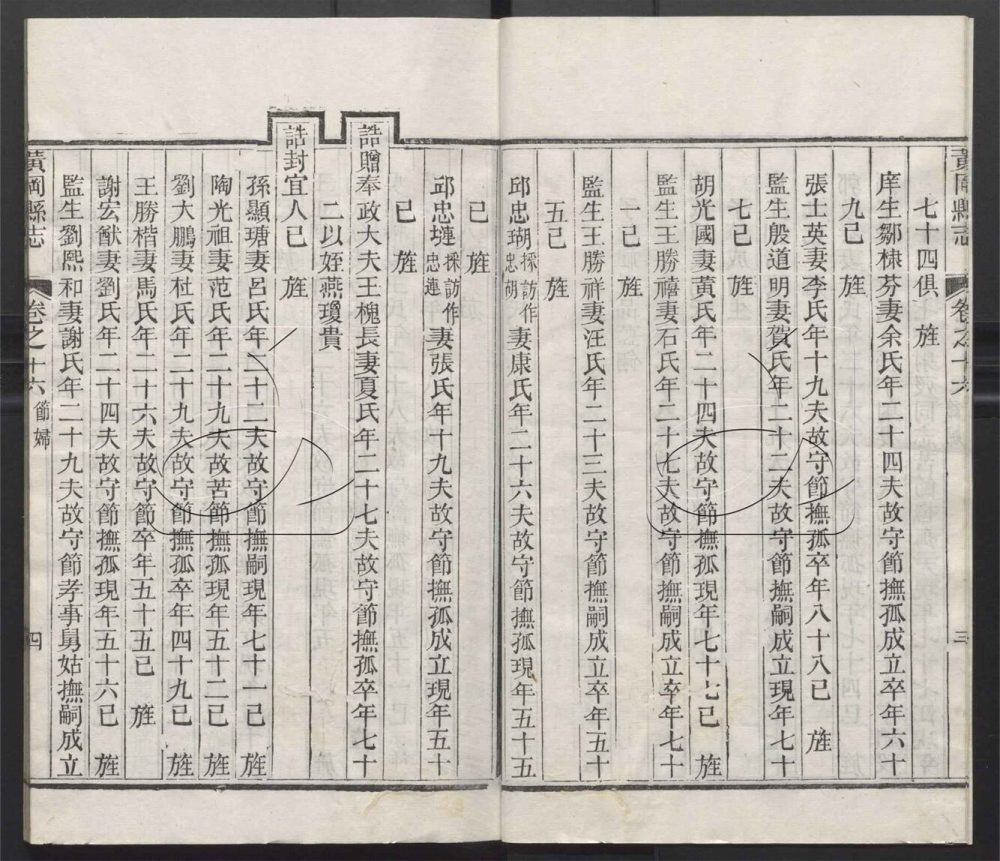 黃岡縣志 卷之十六 三
七十四俱 旌
庠生鄒棣芬妻余氏年二十四夫故守節撫孤成立卒年六十
九已 旌
張士英妻李氏年十九夫故守節撫孤卒年八十八已 旌
監生殷道明妻賀氏年二十二夫故守節撫孤成立現年七十
七已 旌
胡光國妻黃氏年二十四夫故守節撫孤現年七十七已 旌
監生王勝禧妻石氏年二十七夫故守節撫嗣成立卒年七十
一已 旌
監生王勝祥妻汪氏年二十三夫故守節撫嗣成立卒年五十
五已 旌
邱忠瑚採訪作忠胡妻康氏年二十六夫故守節撫孤現年五十五
已 旌
邱忠璉採訪作忠連妻張氏年十九夫故守節撫孤成立現年五十
已 旌
誥贈奉政大夫王槐長妻夏氏年二十七夫故守節撫孤卒年七十
二以姪燕瓊貴
誥封宜人已 旌
孫顯瑭妻呂氏年二十二夫故守節撫嗣現年七十一已 旌
陶光祖妻范氏年二十九夫故苦節撫孤現年五十二已 旌
劉大鵬妻杜氏年二十九夫故守節撫孤卒年四十九已 旌
王勝楷妻馬氏年二十六夫故守節卒年五十五已 旌
謝宏猷妻劉氏年二十四夫故守節撫孤現年五十六已 旌
監生劉熙和妻謝氏年二十九夫故守節孝事舅姑撫嗣成立
黃岡縣志 卷之十六 節婦 四